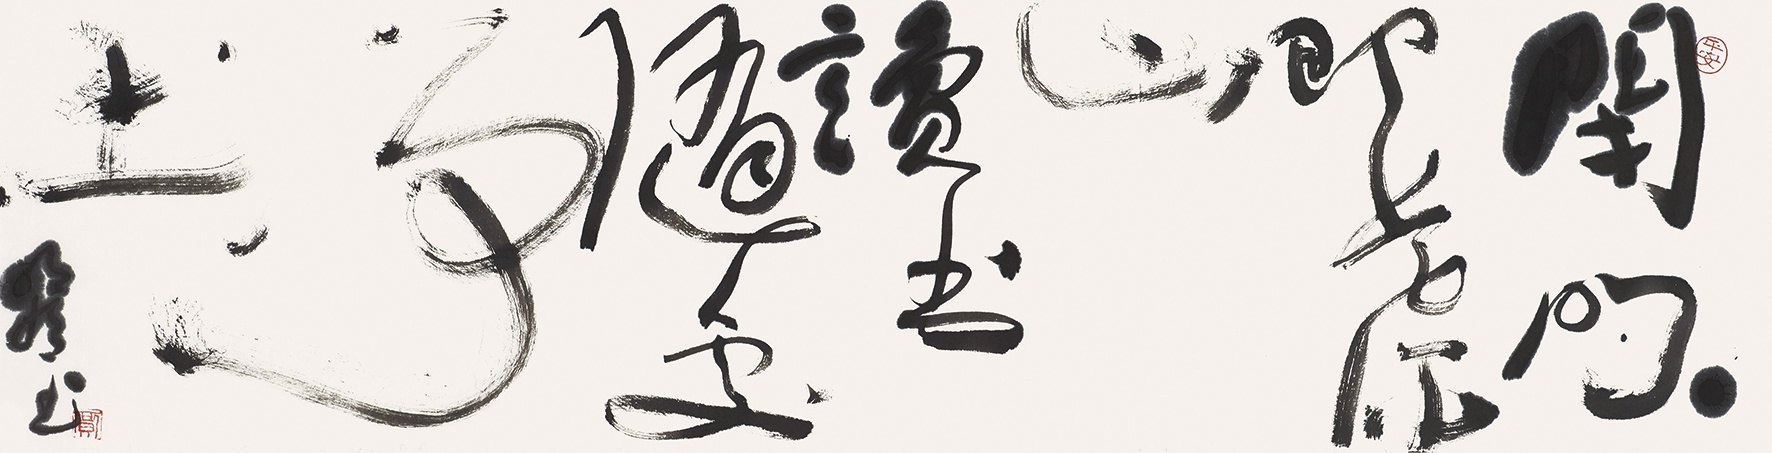 閉門
即是深
山
讀書
隨處
淨
土
平安